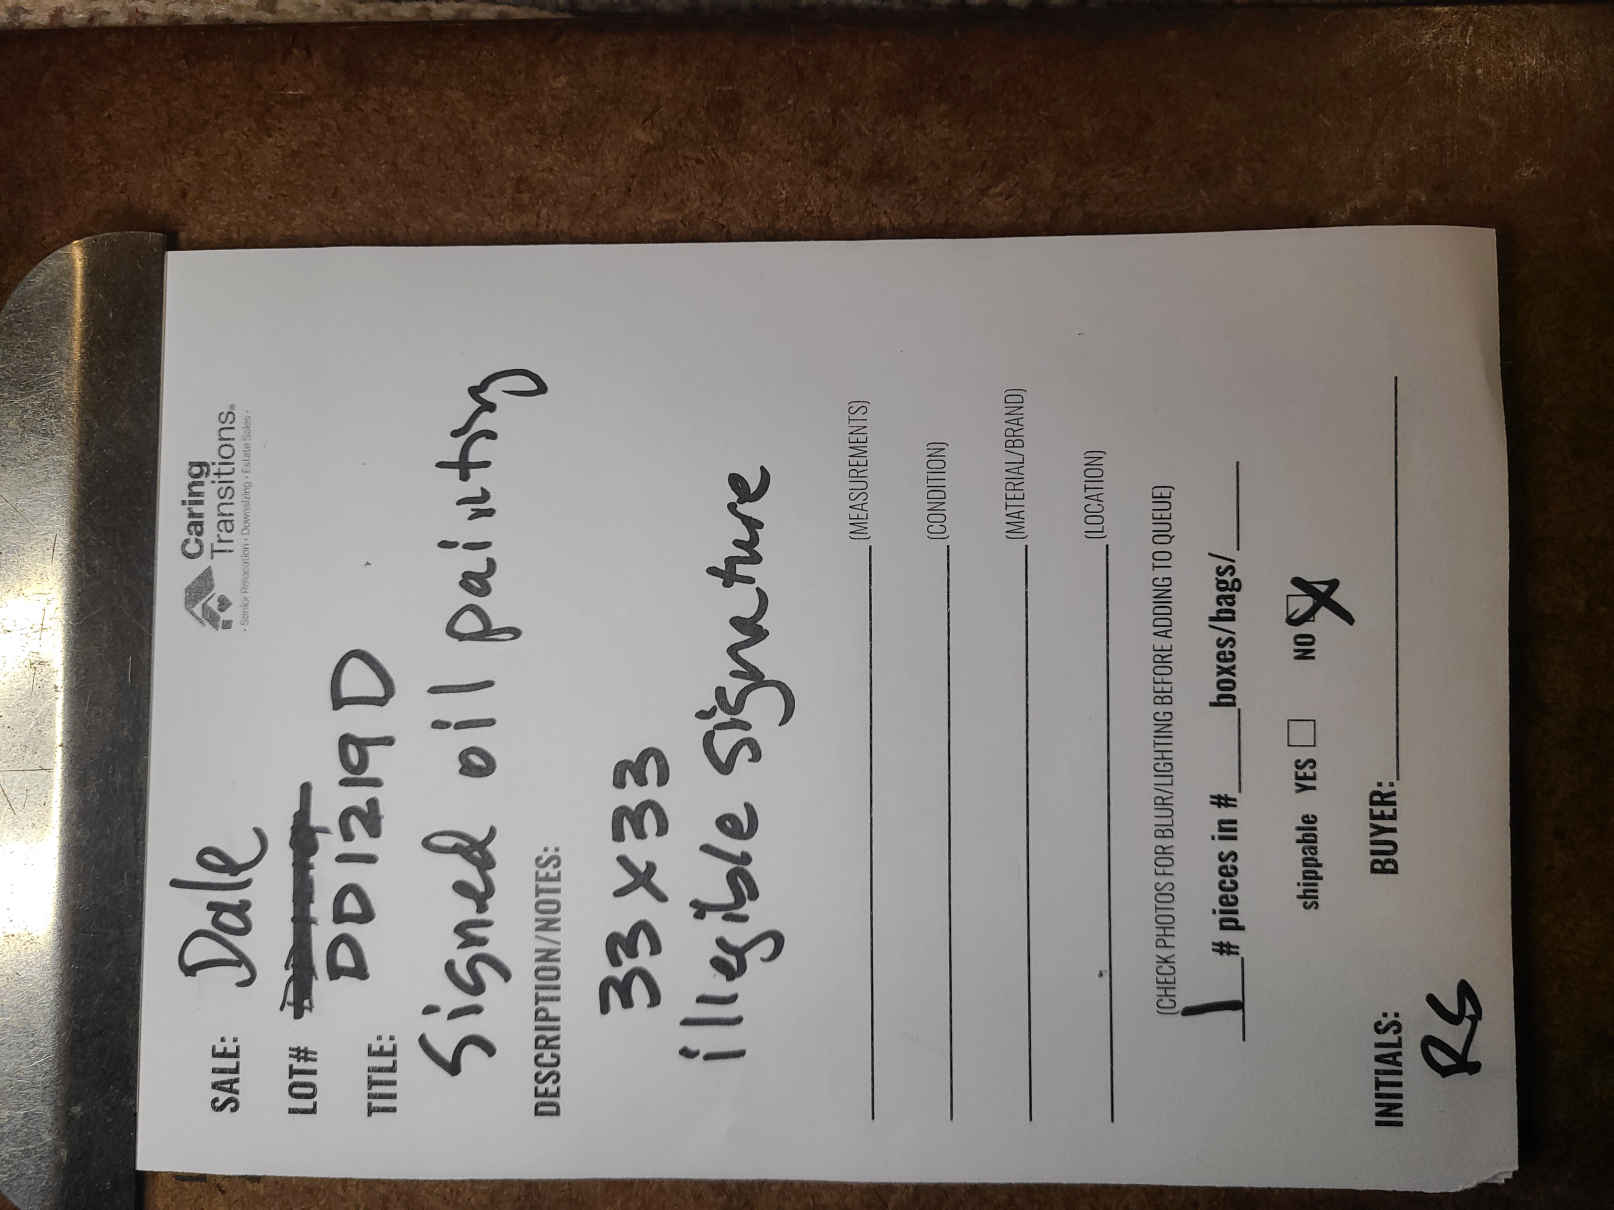 Caring
Transitions®
• Senior Relocation • Downsizing • Estate Sales •
SALE: Dale
LOT#
DD1219D
TITLE:
Signed oil painting
DESCRIPTION/NOTES:
33 x 33
illegible signature
(MEASUREMENTS)
(CONDITION)
(MATERIAL/BRAND)
(LOCATION)
(CHECK PHOTOS FOR BLUR/LIGHTING BEFORE ADDING TO QUEUE)
1 # pieces in #____boxes/bags/____
shippable YES ☐ NO ☒
INITIALS: BUYER:
RS